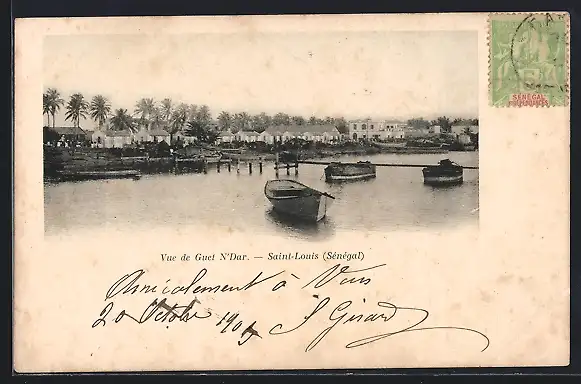 SÉNÉGAL
Vue de Guet N'Dar. — Saint-Louis (Sénégal)
Amicalement à Vous
20 Octobre S Girard